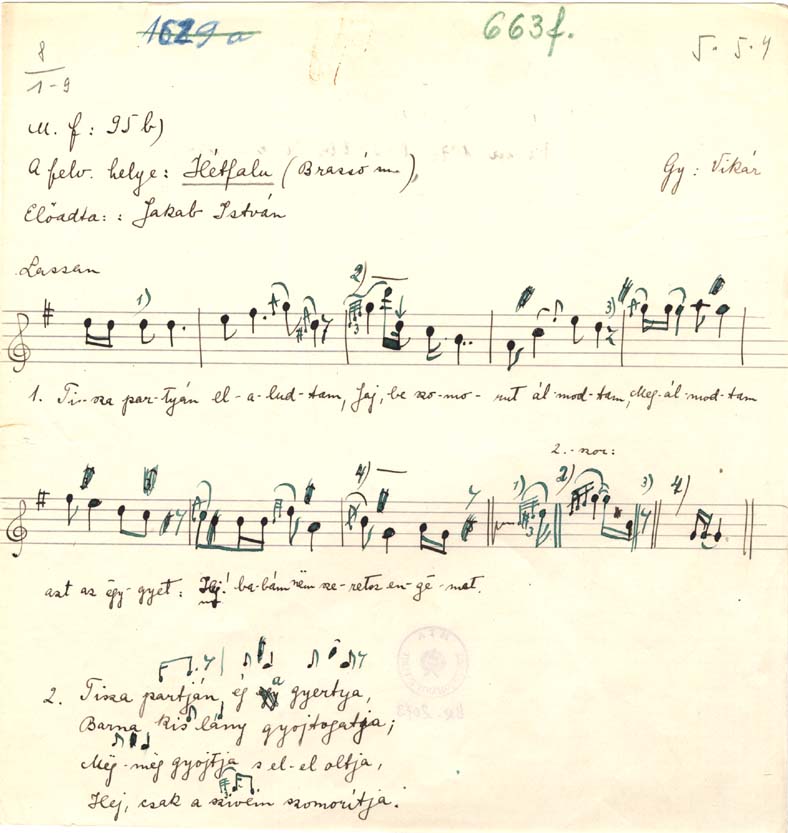 1629 a
663f.
5. 5. 4
8
1-9
M. f: 95 b)
A felv. helye: Hétfalu (Brassó m.),
Gy: Vikár
Előadta: : Jakab István
Lassan
1) 2) 3)
1. Ti-sza par-tyán el-a-lud-tam, Jaj, be szo-mo-rut ál-mod-tam, Meg-ál-mod-tam
2.-szor:
4) 1) 2) 3) 4)
azt az ëgy-gyet: Hej! ba-bám nëm sze-retsz en-gë-met.
2. Tisza partján ég a gyertya,
Barna kis lány gyojtogatja;
Mëg-mëg gyojtja s el-el oltja,
Hej, csak a szivem szomorítja.